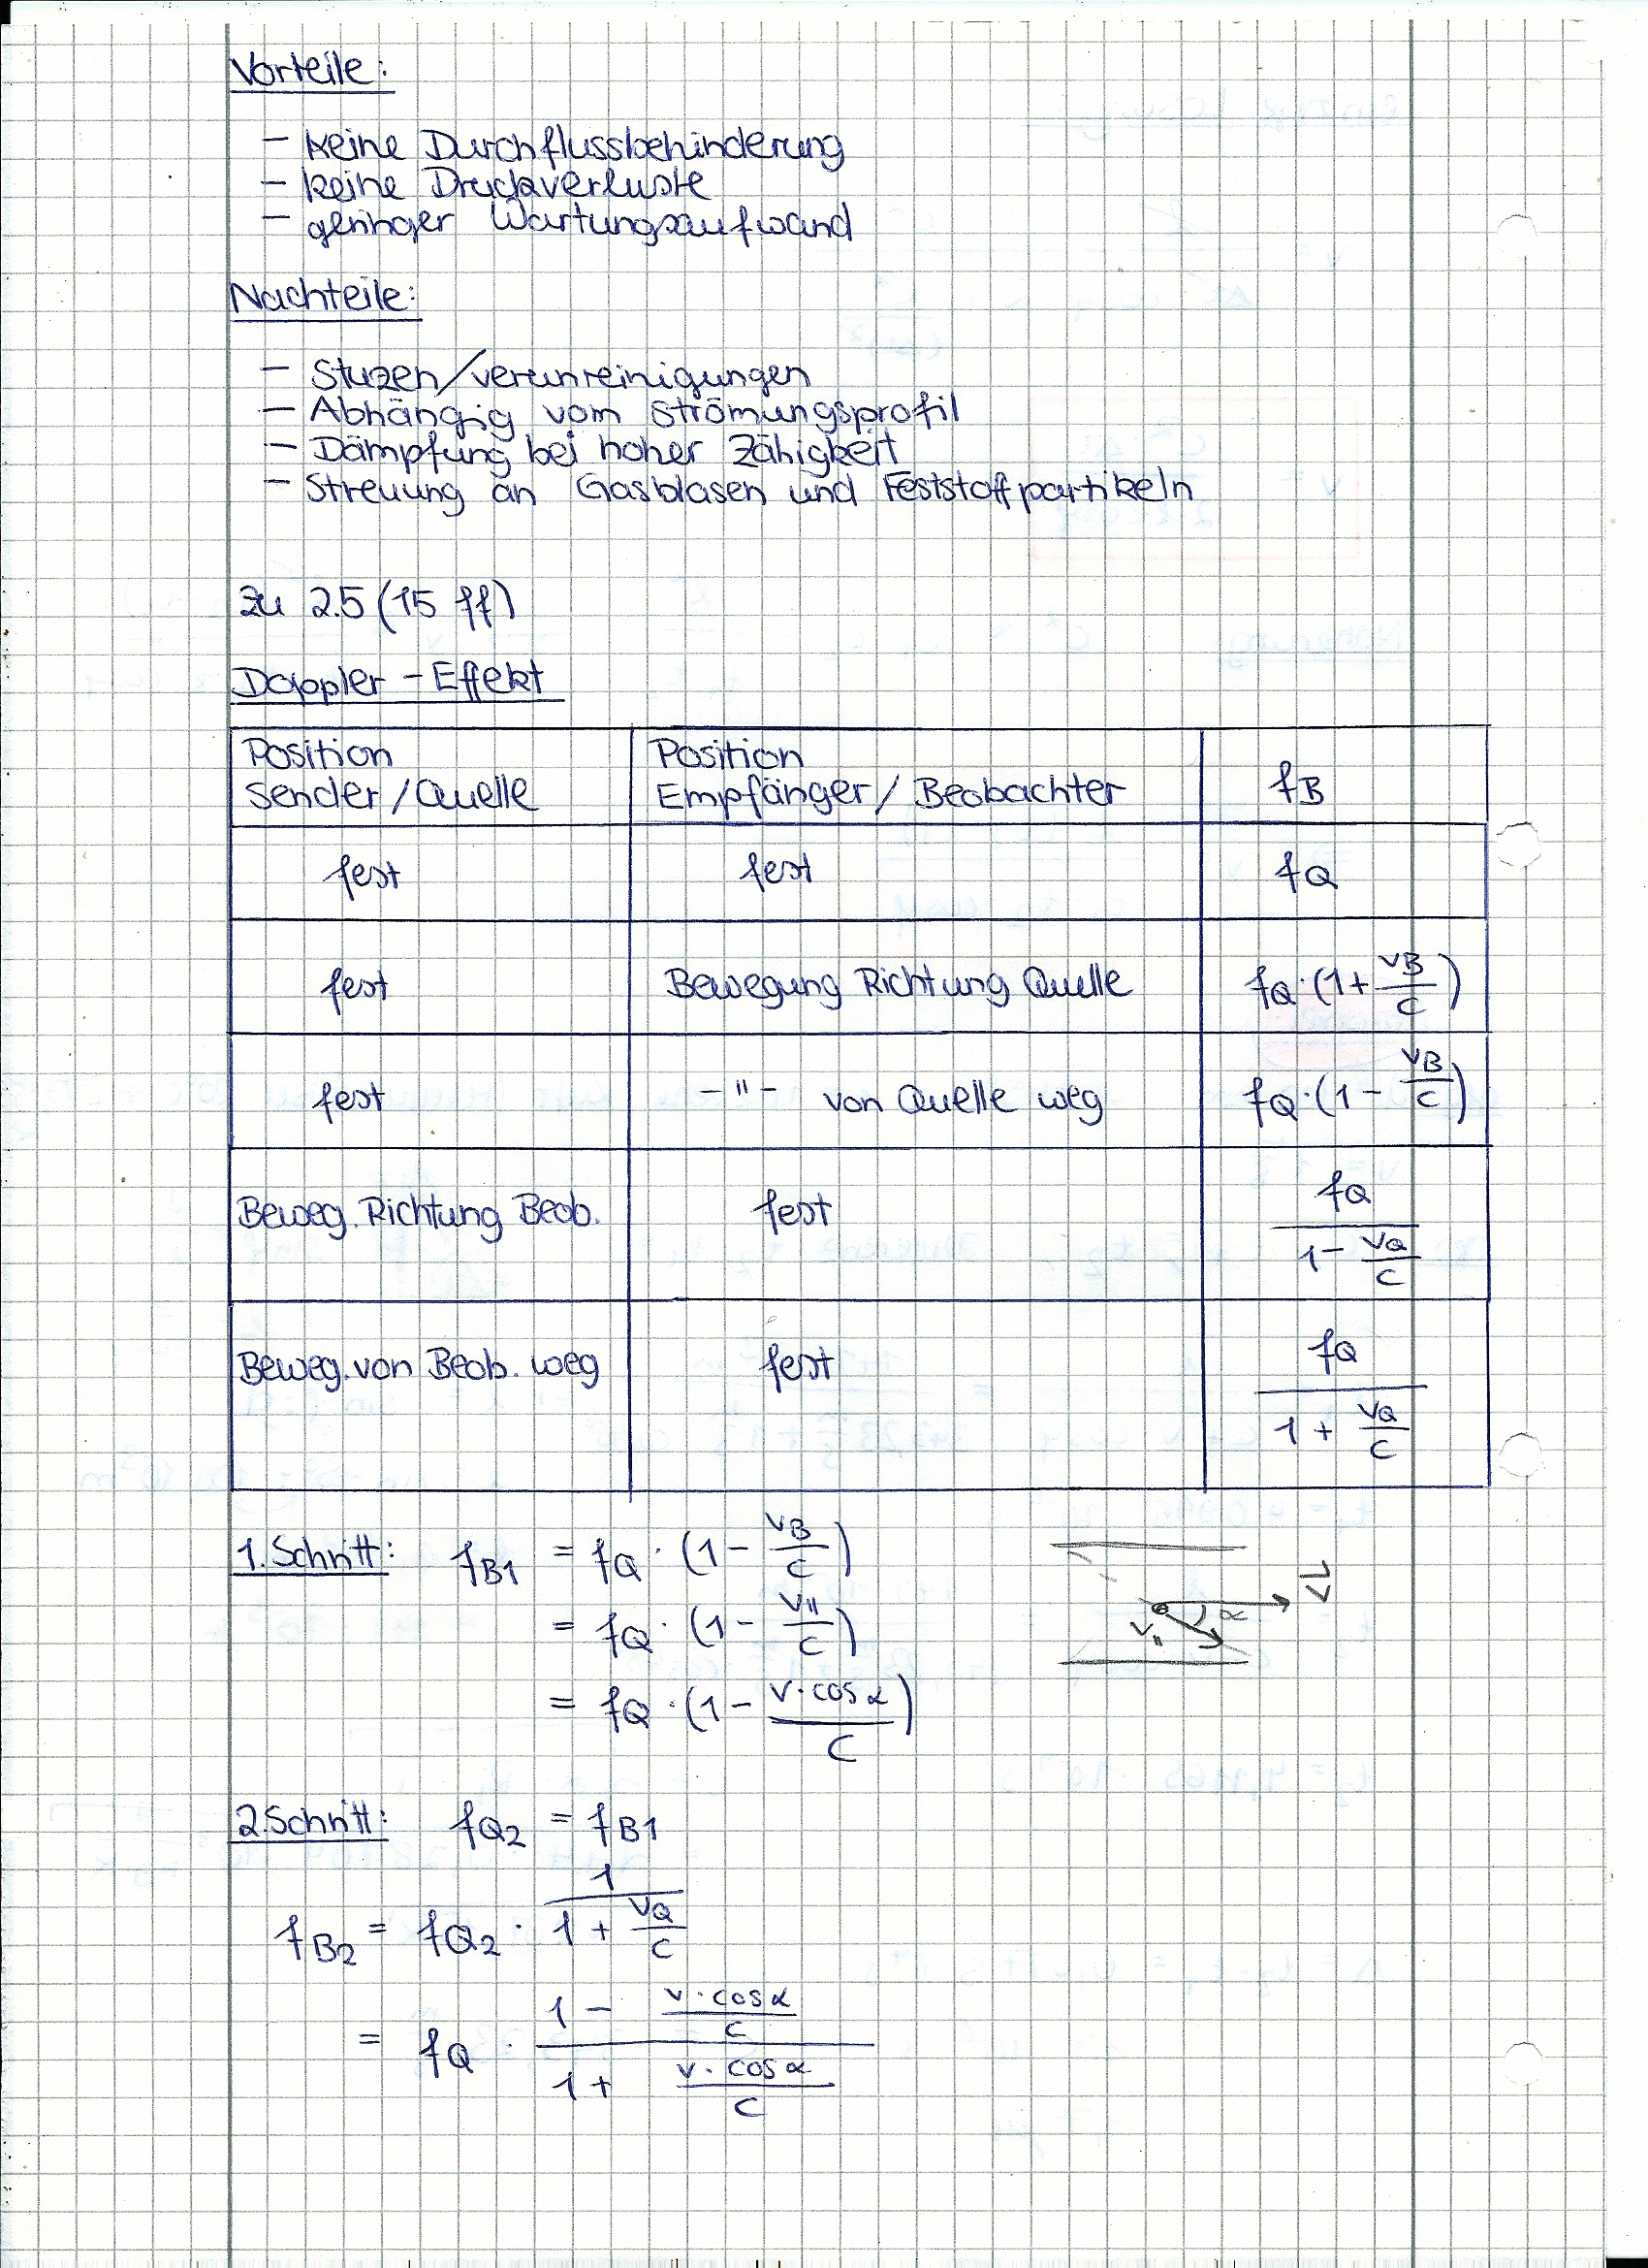 Vorteile:
- keine Durchflussbehinderung
- keine Druckverluste
- geringer Wartungsaufwand
Nachteile:
- Stuzen/verunreinigungen
- Abhängig vom Strömungsprofil
- Dämpfung bei hoher Zähigkeit
- Streuung an Gasblasen und Feststoffpartikeln
zu 2.5 (15 ff)
Doppler - Effekt
Position Sender/Quelle | Position Empfänger/Beobachter | fB
fest | fest | fQ
fest | Bewegung Richtung Quelle | fQ·(1+ vB/c)
fest | -"- von Quelle weg | fQ·(1- vB/c)
Beweg. Richtung Beob. | fest | fQ/(1- vQ/c)
Beweg. von Beob. weg | fest | fQ/(1+ vQ/c)
1. Schritt: fB1 = fQ · (1- vB/c)
= fQ · (1- v॥/c)
= fQ · (1- v·cos α/c)
v α
v॥
2. Schritt: fQ2 = fB1
fB2 = fQ2 · 1/(1+ vQ/c)
= fQ · (1- v·cos α/c)/(1+ v·cos α/c)